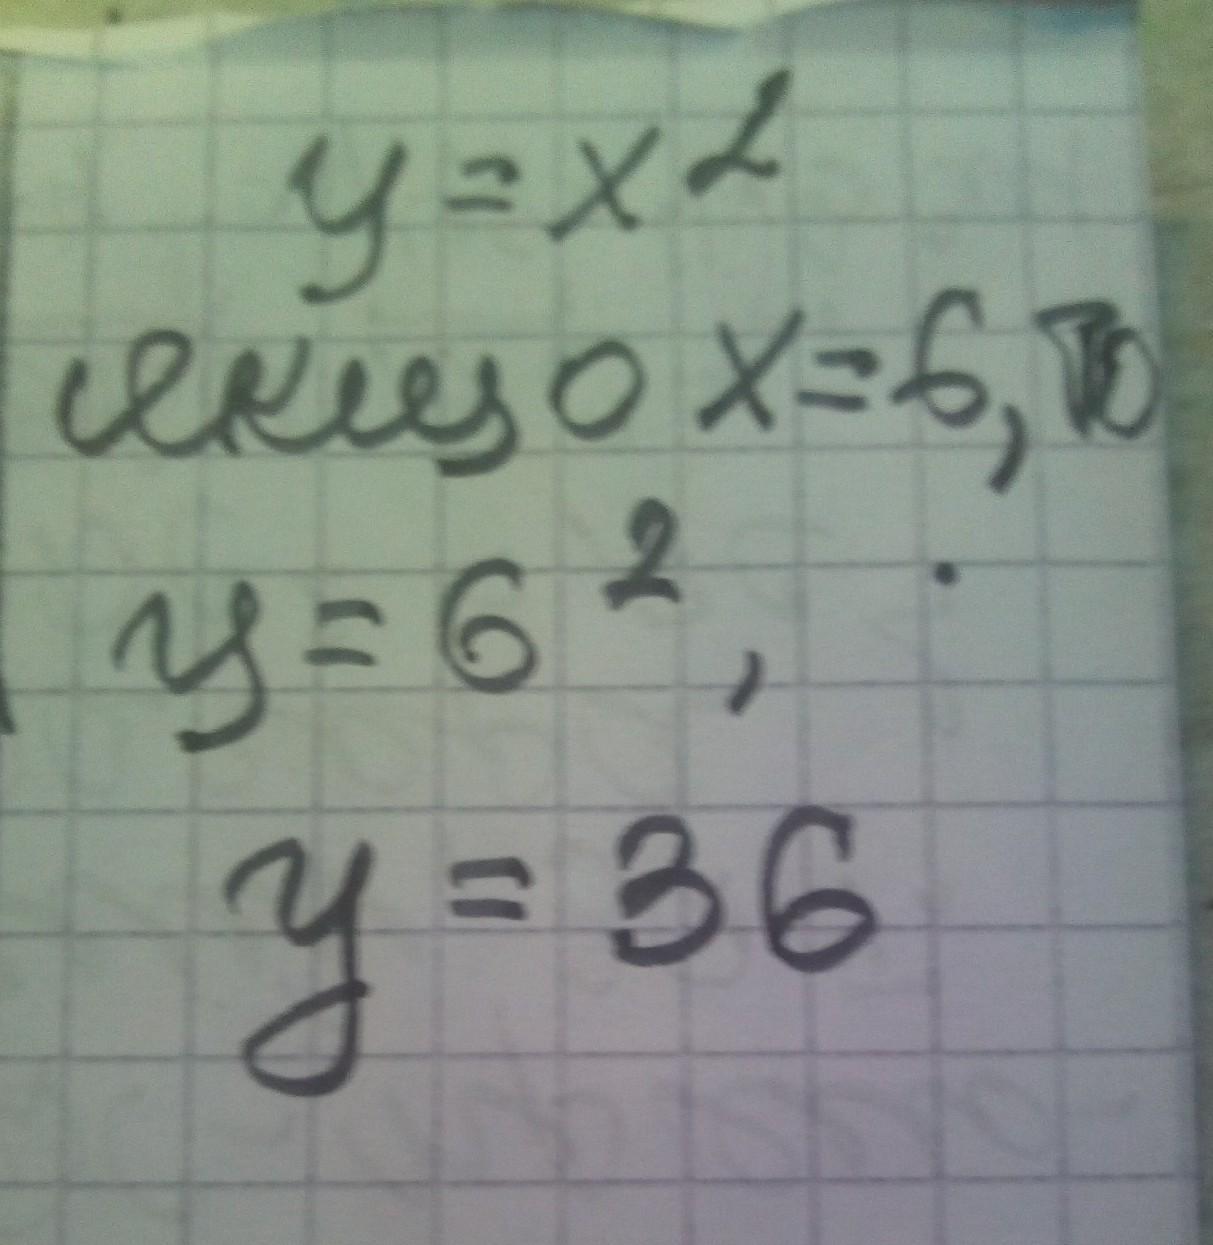 y = x²
якщо x = 6, то
y = 6²,
y = 36